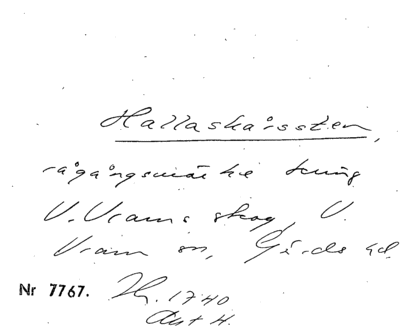 Hallaskärssten,
rågångsmärke kring
V. Vrams skog, V.
Vram sn, Gärds hd.
Nr 7767. Hh. 1740
Akt H.